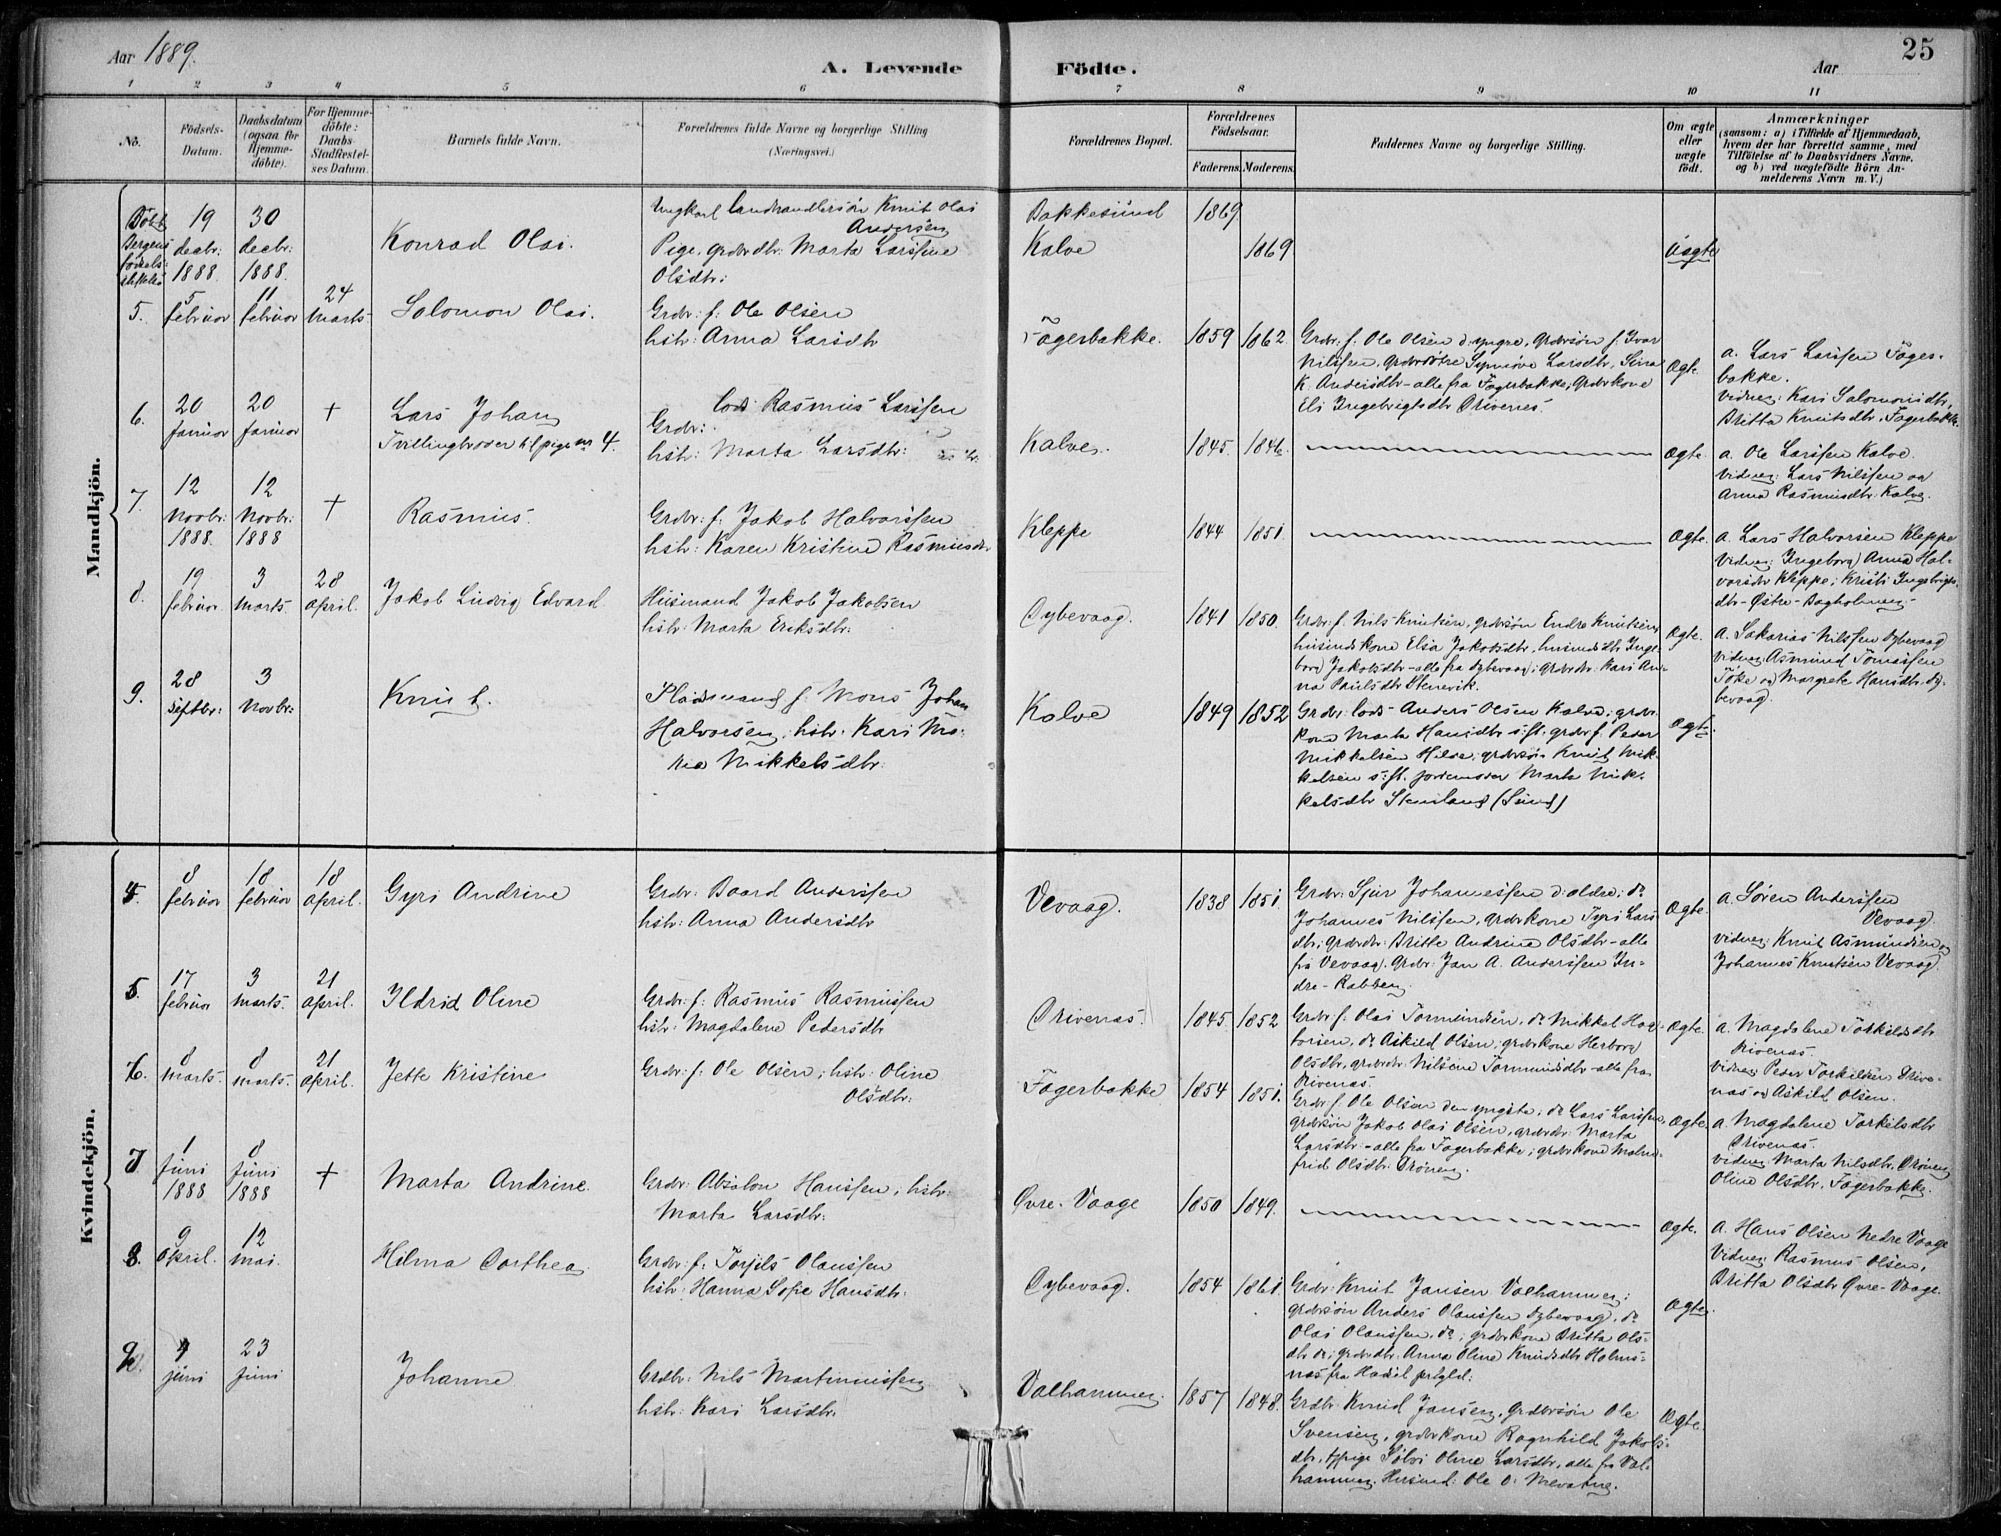 Aar 1889.
A. Levende Födte.
Aar
25
1 2 3 4 5 6 7 8 9 10 11
No.
Födsels-Datum.
Daabsdatum (ogsaa for Hjemmedöbte).
For Hjemmedöbte: Daabs-Stadfestelses Datum.
Barnets fulde Navn.
Forældrenes fulde Navne og borgerlige Stilling
(Næringsvei.)
Forældrenes Bopæl.
Forældrenes Födselsaar.
Faderens. Moderens.
Faddernes Navne og borgerlige Stilling.
Om ægte eller uægte födt.
Anmærkninger
(saasom: a) i Tilfælde af Hjemmedaab,
hvem der har forrettet samme, med
Tilföielse af to Daabsvidners Navne.
og b) ved uægtefödte Börn An-
melderens Navn m. V.)
Mandkjön.
Döbt Bergens
19 decbr: 1888
30 decbr: 1888.
Konrad Olai.
Ungkarl Landhandlersön Knut Olai
Andersen
Pige, grdbrdtr: Marta Larsine
Olsdtr:
Bakkesund
Kalve
1869
1869
Uægte
5.
5 februar
11 februar
24 Marts
Salomon Olai.
Grdbr: f: Ole Olsen
hstr: Anna Larsdtr
Fagerbakke.
1859 1862.
Grdbr. f. Ole Olsen d. yngre, grdbrsön f. Ivar
Nilssen, grdbrdötre Synnöve Larsdtr, Sina
K. Andersdtr - alle fra Fagerbakke, grdbrkone
Eli Ingebrigtsdtr Drivenes.
Ægte.
a. Lars Larssen Fager-
bakke.
Vidner: Kari Salomonsdtr,
Britta Knutsdtr, Fagerbakke.
6.
20 Januar
20 Januar
+
Lars Johan
Tvillingbroder til pige nr 4.
Grdbr: lods Rasmus Larssen
hstr: Marta Larsdtr:
Kalve.
1845. 1846.
Ægte.
a. Ole Larssen Kalve.
Vidner: Lars Nilssen og
Anna Rasmusdtr. Kalve.
7.
12 Novbr: 1888.
12 Novbr: 1888
+
Rasmus.
Grdbr: f: Jakob Halvorssen
hstr: Karen Kristine Rasmusdtr
Kleppe
1844 1851.
Ægte.
a. Lars Halvorsen Kleppe
Vidner: Ingeborg Anna Hal-
vorsdtr Kleppe; Kristi Ingebrigts-
dtr - Østre - Bagholmen.
8.
19 februar.
3 Marts.
28 April.
Jakob Ludvig Edvard
Husmand Jakob Jakobsen
hstr: Marta Eriksdtr:
Dybevaag.
1841 1850.
Grdbr. f. Nils Knutsen, grdbrsön Endre Knutsen,
husmdskone Elsa Jakobsdtr, husmdsdtr Inge-
borg Jakobsdtr - alle fra Dybevaag; grdbrdtr. Kari An-
na Paulsdtr Stenevik.
Ægte.
a. Sakarias Nilssen Dybevaag
Vidner: Asmund Tomassen
Töke og Margrete Hansdtr Dy-
bevaag.
9.
28 Septbr:
3 Novbr:
Knut.
Pladsmand f. Mons Johan
Halvorsen, hstr: Kari Ma-
ria Mikkelsdtr:
Kalve
1849 1852
Grdbr: lods Anders Olsen Kalve; grdbr.
kone Marta Hansdtr s: st. grdbr f. Peder
Mikkelsen Hilde; grdbrsön Knut Mik-
kelsen s: st. jordemoder Marta Mik-
kelsdtr Stensland (Sund)
Ægte.
Kvindekjön.
4.
8 februar
18 februar
18 April.
Gyri Andrine
Grdbr: Baard Anderssen
hstr: Anna Andersdtr
Vevaag.
1838 1851.
Grdbr: Sjur Johannessen d. ældre; do
Johannes Nilssen, grdbrkone Gyri Lars
dtr; grdbrdtr: Britte Andrina Olsdtr - alle
fra Vevaag. Grdbr: Jan A. Anderssen In-
dre - Rabben.
Ægte.
a. Sören Anderssen
Vevaag.
Vidner: Knut Asmundsen og
Johannes Knutsen Vevaag.
5.
17 februar
3 Marts.
21 April.
Ildrid Oline
Grdbr: f: Rasmus Rasmussen
hstr: Magdalene Pedersdtr
Drivenas.
1845. 1852
Grdbr f: Olai Tormundsen, do Mikkel Haa-
korsen, do Askild Olsen; grdbrkone Herborg
Olsdtr, grdbrdtr. Nilsine Tormundsdtr - alle fra
Drivenas.
Ægte.
a. Magdalene Torkildsdtr
Drivenas.
Vidner Peder Torkildsen Drive-
nas og Askild Olsen.
6.
8 Marts.
8 Marts.
21 April.
Jette Kristine
Grdbr: f: Ole Olsen; hstr: Oline
Olsdtr:
Fagerbakke
1854 1851.
Grdbr f. Ole Olsen den yngste; do Lars Larssen,
grdbrsön Jakob Olai Olsen, grdbrdtr. Marta
Larsdtr - alle fra Fagerbakke; grdbrkone Malm-
frid Olsdtr. Drönen.
Ægte.
a. Magdalene Torkelsdtr
Drivenas.
Vidner Marta Nilsdtr. Drönen
Oline Olsdtr. Fagerbakke.
7
1 Juni 1888
8 Juni 1888
+
Marta Andrine.
Grdbr: Absalon Hanssen, hstr:
Marta Larsdtr:
Øvre-Vaage
1850 1849.
Ægte.
a. Hans Olsen Nedre Vaage
Vidner Rasmus Olsen,
Britta Olsdtr Øvre-Vaage.
8.
9 April.
12 Mai.
Hilma Dorthea
Grdbr: f: Torjils Olaussen
hstr: Hanna Sofie Hansdtr:
Dybevaag.
1854 1861.
Grdbr: Knut Jansen Valhammer;
grdbrsön Anders Olaussen Dybevaag, do
Olai Olaussen, do; grdbrkone Britta Ols-
dtr do; grdbrdtr. Anna Oline Knudsdtr Holme-
nas fra
Ægte.
9.
4 Juni
23 Juni
Johanne
Grdbr: Nils Martinussen
hstr: Kari Larsdtr.
Valhammer.
1857 1848.
Grdbr: Knud Jansen, Grdbrsön Ole
Svensen, grdbrkone Ragnhild Jakobs-
dtr, tjpige Sölvi Oline Larsdtr, alle fra Val-
hammer, Husmd: Ole O:
Ægte.